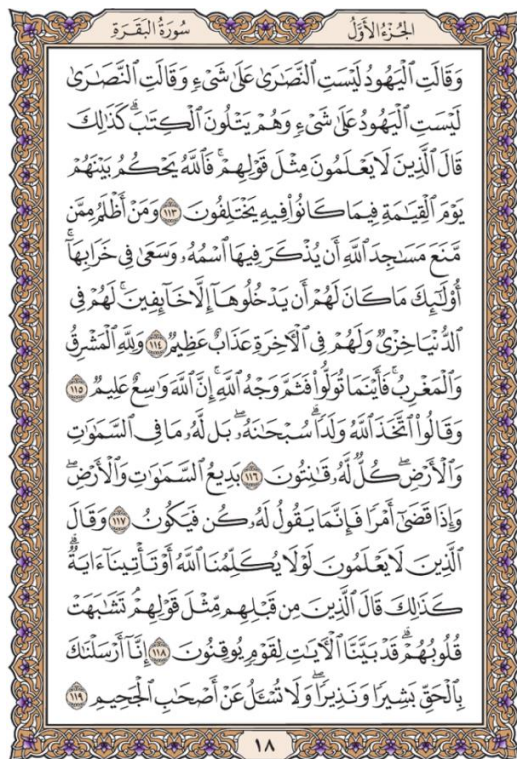 الجُزْءُ الأَوَّلُ سُورَةُ البَقَرَةِ
وَقَالَتِ ٱلْيَهُودُ لَيْسَتِ ٱلنَّصَٰرَىٰ عَلَىٰ شَىْءٍ وَقَالَتِ ٱلنَّصَٰرَىٰ
لَيْسَتِ ٱلْيَهُودُ عَلَىٰ شَىْءٍ وَهُمْ يَتْلُونَ ٱلْكِتَٰبَۗ كَذَٰلِكَ
قَالَ ٱلَّذِينَ لَا يَعْلَمُونَ مِثْلَ قَوْلِهِمْۚ فَٱللَّهُ يَحْكُمُ بَيْنَهُمْ
يَوْمَ ٱلْقِيَٰمَةِ فِيمَا كَانُوا۟ فِيهِ يَخْتَلِفُونَ ١١٣ وَمَنْ أَظْلَمُ مِمَّن
مَّنَعَ مَسَٰجِدَ ٱللَّهِ أَن يُذْكَرَ فِيهَا ٱسْمُهُۥ وَسَعَىٰ فِى خَرَابِهَآۚ
أُو۟لَٰٓئِكَ مَا كَانَ لَهُمْ أَن يَدْخُلُوهَآ إِلَّا خَآئِفِينَۚ لَهُمْ فِى
ٱلدُّنْيَا خِزْىٌ وَلَهُمْ فِى ٱلْءَاخِرَةِ عَذَابٌ عَظِيمٌ ١١٤ وَلِلَّهِ ٱلْمَشْرِقُ
وَٱلْمَغْرِبُۚ فَأَيْنَمَا تُوَلُّوا۟ فَثَمَّ وَجْهُ ٱللَّهِۚ إِنَّ ٱللَّهَ وَٰسِعٌ عَلِيمٌ ١١٥
وَقَالُوا۟ ٱتَّخَذَ ٱللَّهُ وَلَدًاۗ سُبْحَٰنَهُۥۖ بَل لَّهُۥ مَا فِى ٱلسَّمَٰوَٰتِ
وَٱلْأَرْضِۖ كُلٌّ لَّهُۥ قَٰنِتُونَ ١١٦ بَدِيعُ ٱلسَّمَٰوَٰتِ وَٱلْأَرْضِۖ
وَإِذَا قَضَىٰٓ أَمْرًا فَإِنَّمَا يَقُولُ لَهُۥ كُن فَيَكُونُ ١١٧ وَقَالَ
ٱلَّذِينَ لَا يَعْلَمُونَ لَوْلَا يُكَلِّمُنَا ٱللَّهُ أَوْ تَأْتِينَآ ءَايَةٌۗ
كَذَٰلِكَ قَالَ ٱلَّذِينَ مِن قَبْلِهِم مِّثْلَ قَوْلِهِمْۘ تَشَٰبَهَتْ
قُلُوبُهُمْۗ قَدْ بَيَّنَّا ٱلْءَايَٰتِ لِقَوْمٍ يُوقِنُونَ ١١٨ إِنَّآ أَرْسَلْنَٰكَ
بِٱلْحَقِّ بَشِيرًا وَنَذِيرًاۖ وَلَا تُسْـَٔلُ عَنْ أَصْحَٰبِ ٱلْجَحِيمِ ١١٩
١٨